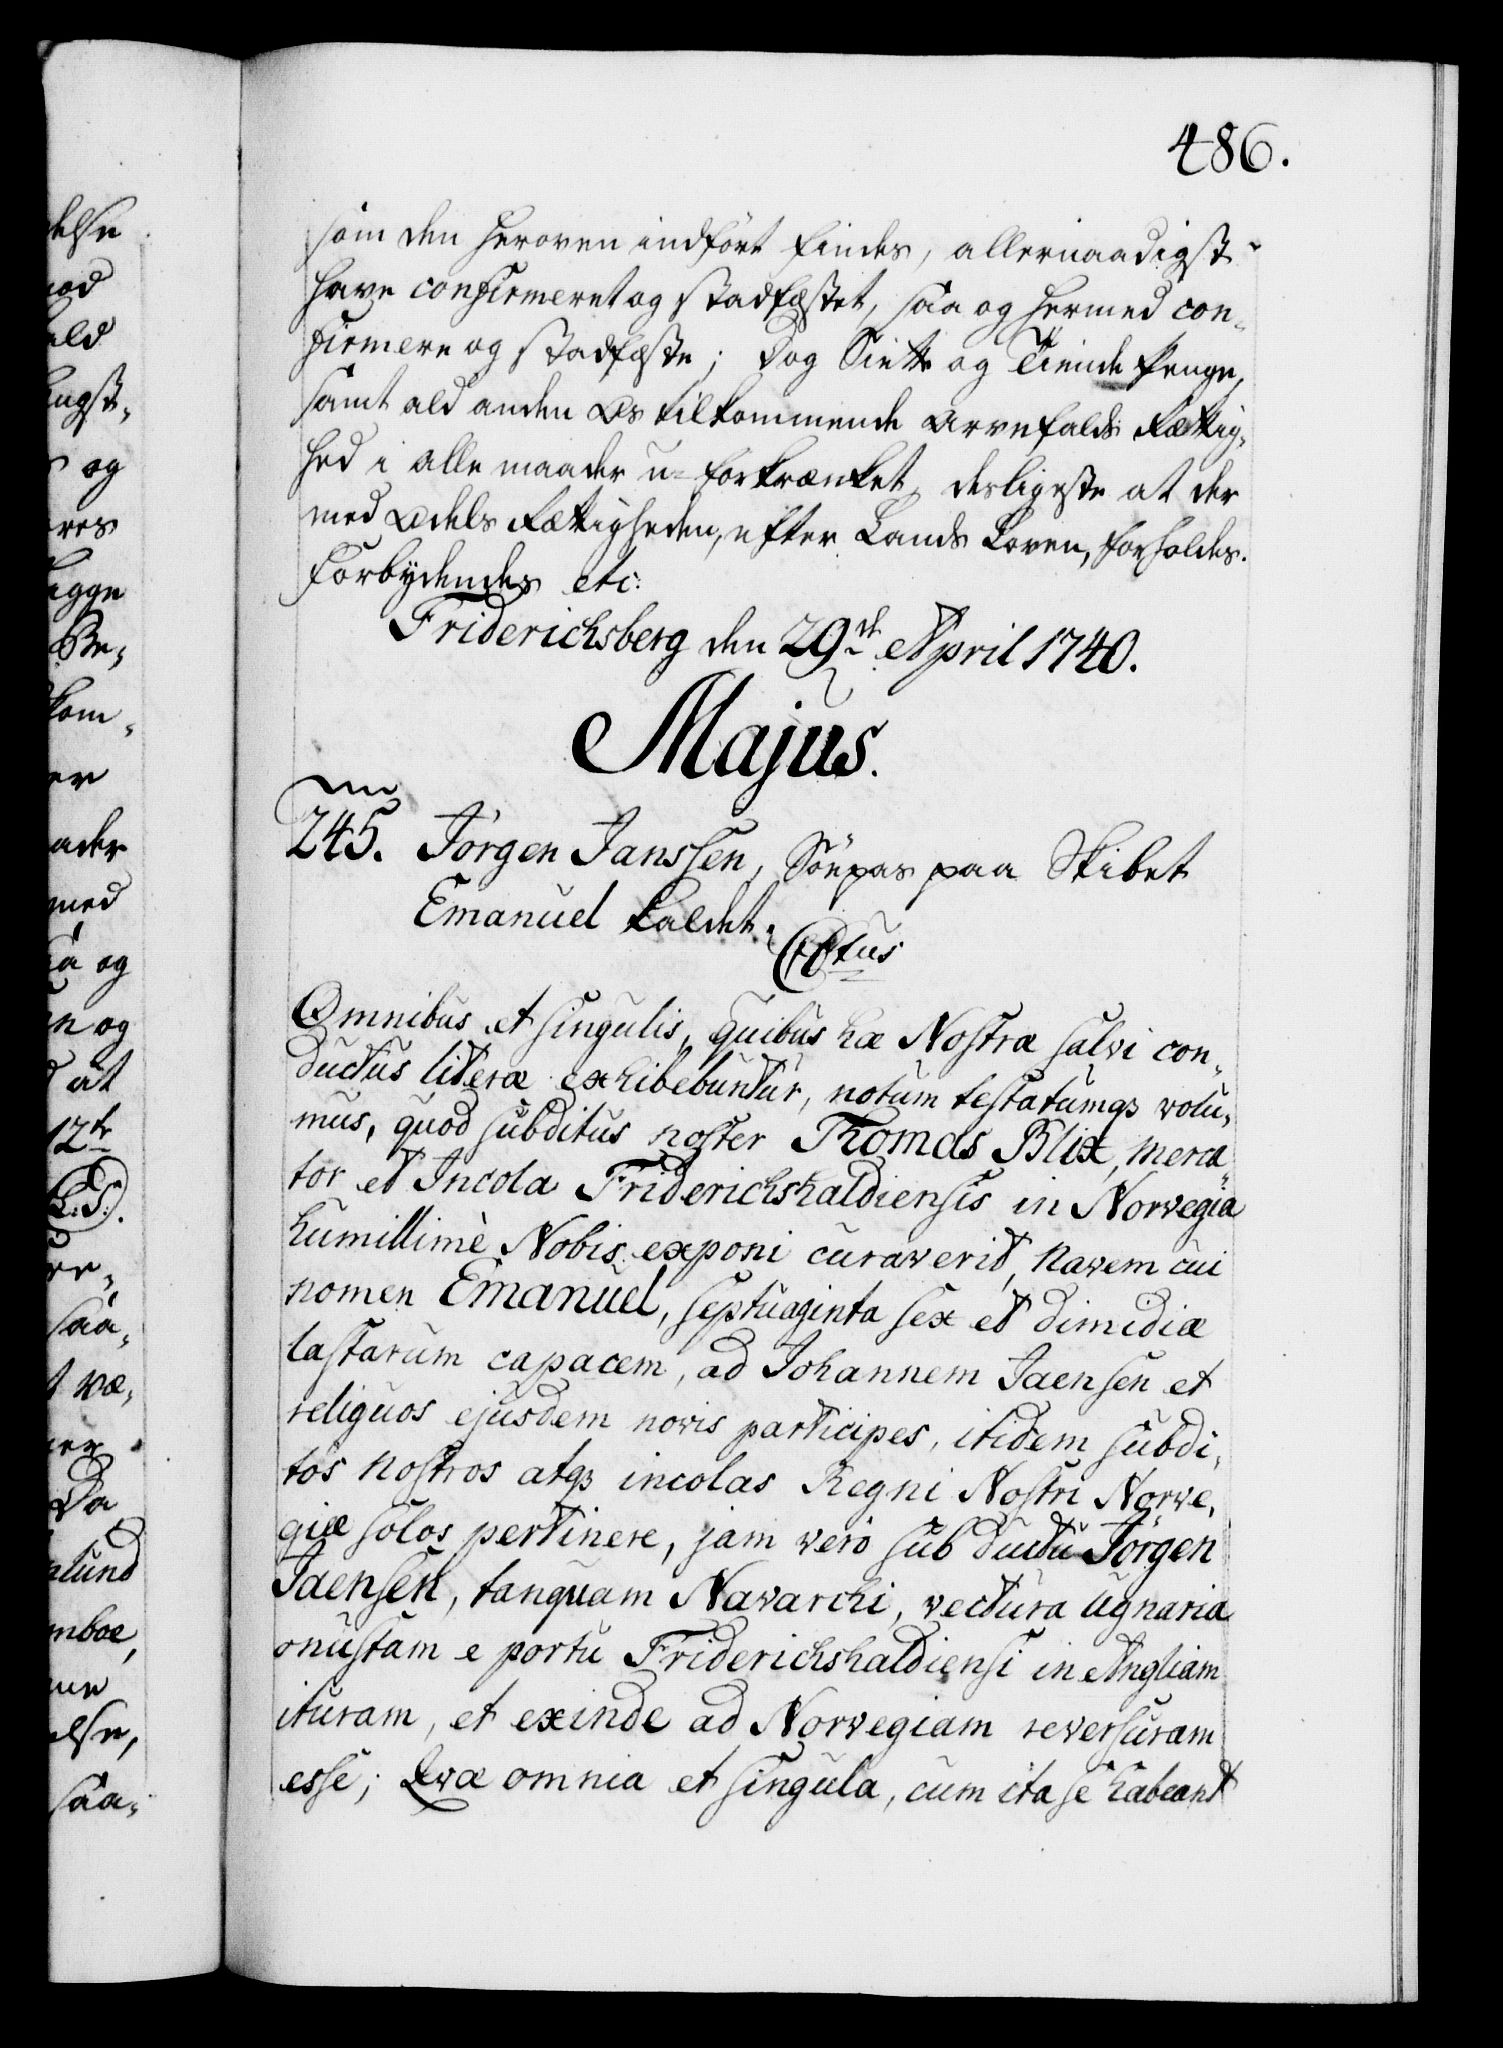 486.
som den heroven indført findes, allernaadigst
have confirmeret og stadfæstet, saa og hermed con-
firmere og stadfæste; dog Siette og Tiende Penge,
samt ald anden Os tilkommende Arvefalds Rettig-
hed i alle maader u-forkrænket, desligeste at der
med Odels Rættigheden, efter Lands Loven, forholdes.
Forbydendes etc:
Friderichsberg den 29de April 1740.
Majus.
245. Jørgen Janssen, Söepas paa Skibet
Emanuel kaldet.
C 6tus
Omnibus et singulis, quibus hæ Nostræ salvi con-
ductus literæ exhibebuntur, notum testatumqz volu-
mus, quod subditus noster Thomas Blix, merca-
tor et Incola Friderichshaldiensis in Norvegia
humillimè Nobis exponi curaverit, navem cui
nomen Emanuel, septuaginta sex et dimidiæ
lastarum capacem, ad Johannem Jaensen et
reliquos ejusdem novis participes, itidem subdi-
tos nostros atqz incolas Regni Nostri Norve-
giæ solos pertinere, jam vero sub ductu Jörgen
Jaensen, tanquam Navarchi, vectura lignaria
onustam e portu Friderichshaldiensi in Angliam
ituram, et exinde ad Norvegiam reversuram
esse; Qvæ omnia et singula, cum ita se habeant
delse
ald
og
eres
egge
Be-
kom-
er
ader
med
og
og
at
12te
L.S.
saa-
væ-
Da
elund
mboe,
else,
saa-